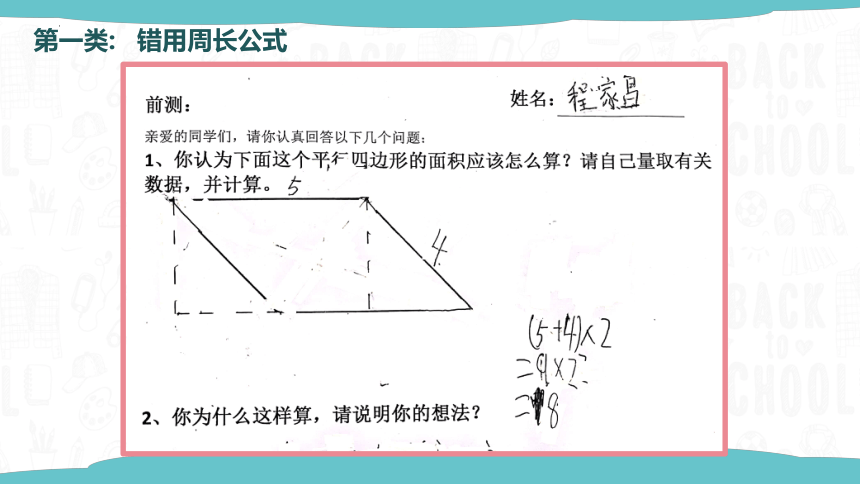 第一类： 错用周长公式
前测：
姓名：程家昌
亲爱的同学们，请你认真回答以下几个问题：
1、你认为下面这个平行四边形的面积应该怎么算？请自己量取有关
数据，并计算。 5
4
(5+4)×2
=9×2
=18
2、你为什么这样算，请说明你的想法？
BACK
to
SCHOOL